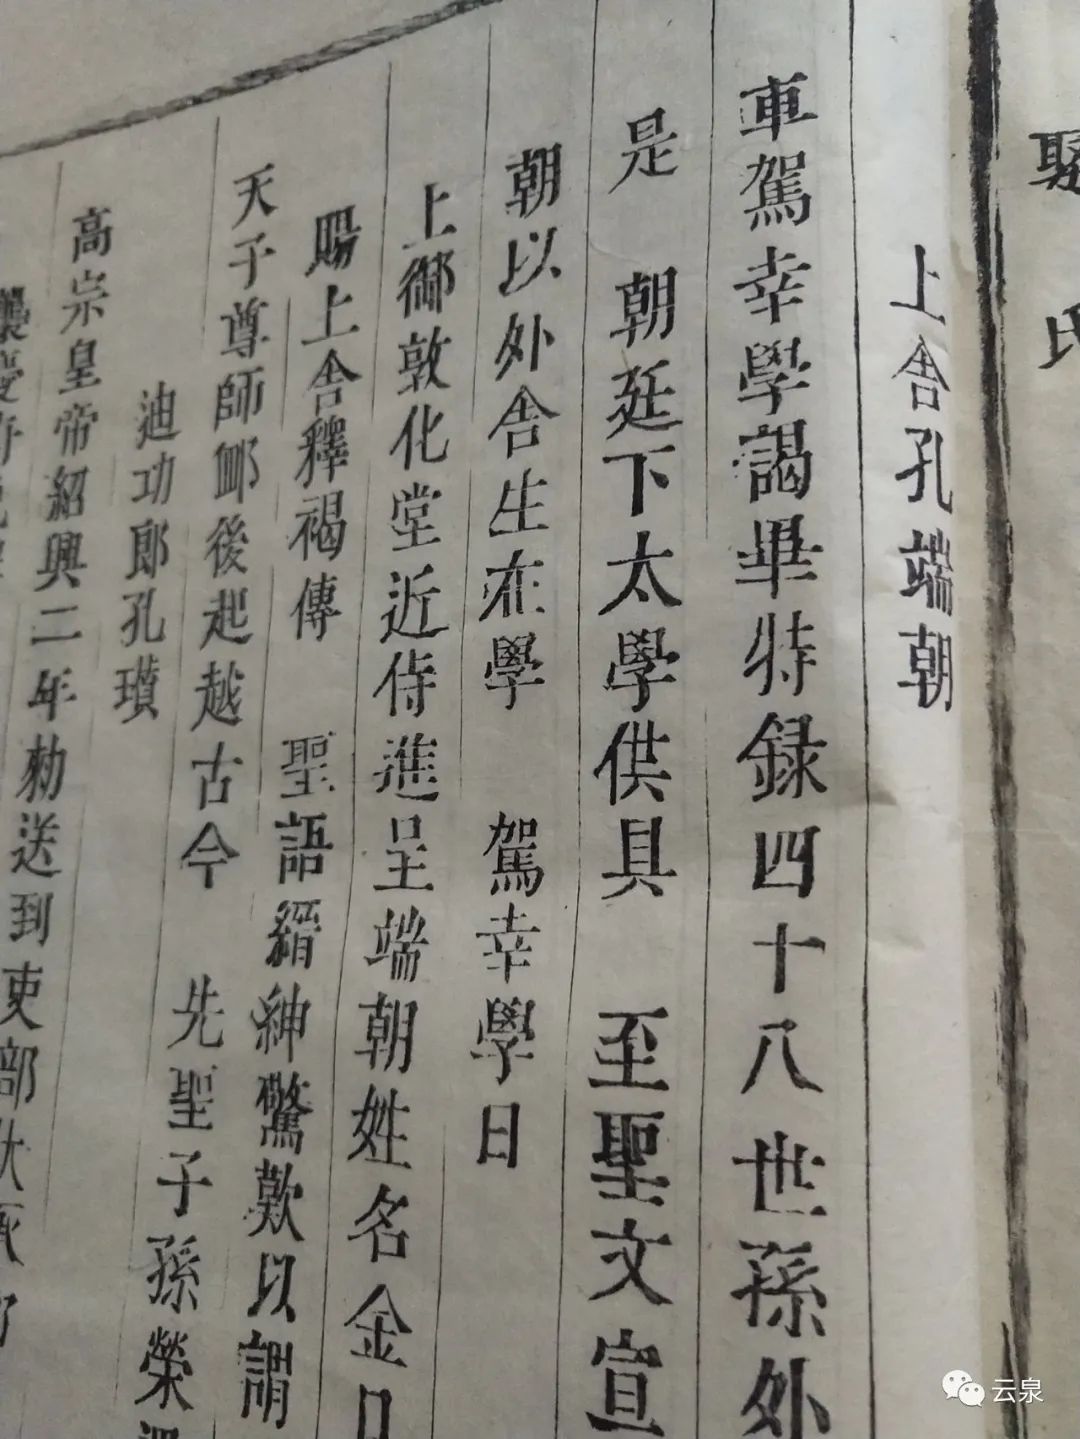 氏
上舍孔端朝
車駕幸學謁畢特録四十八世孫外
是 朝廷下太學供具 至聖文宣
朝以外舍生在學 駕幸學日
上御敦化堂近侍進呈端朝姓名金口
賜上舍釋褐傳 聖語縉紳驚歎以謂
天子尊師卹後起越古今 先聖子孫榮
迪功郎孔瓚
高宗皇帝紹興二年勑送到吏部狀承
襲慶府
云泉